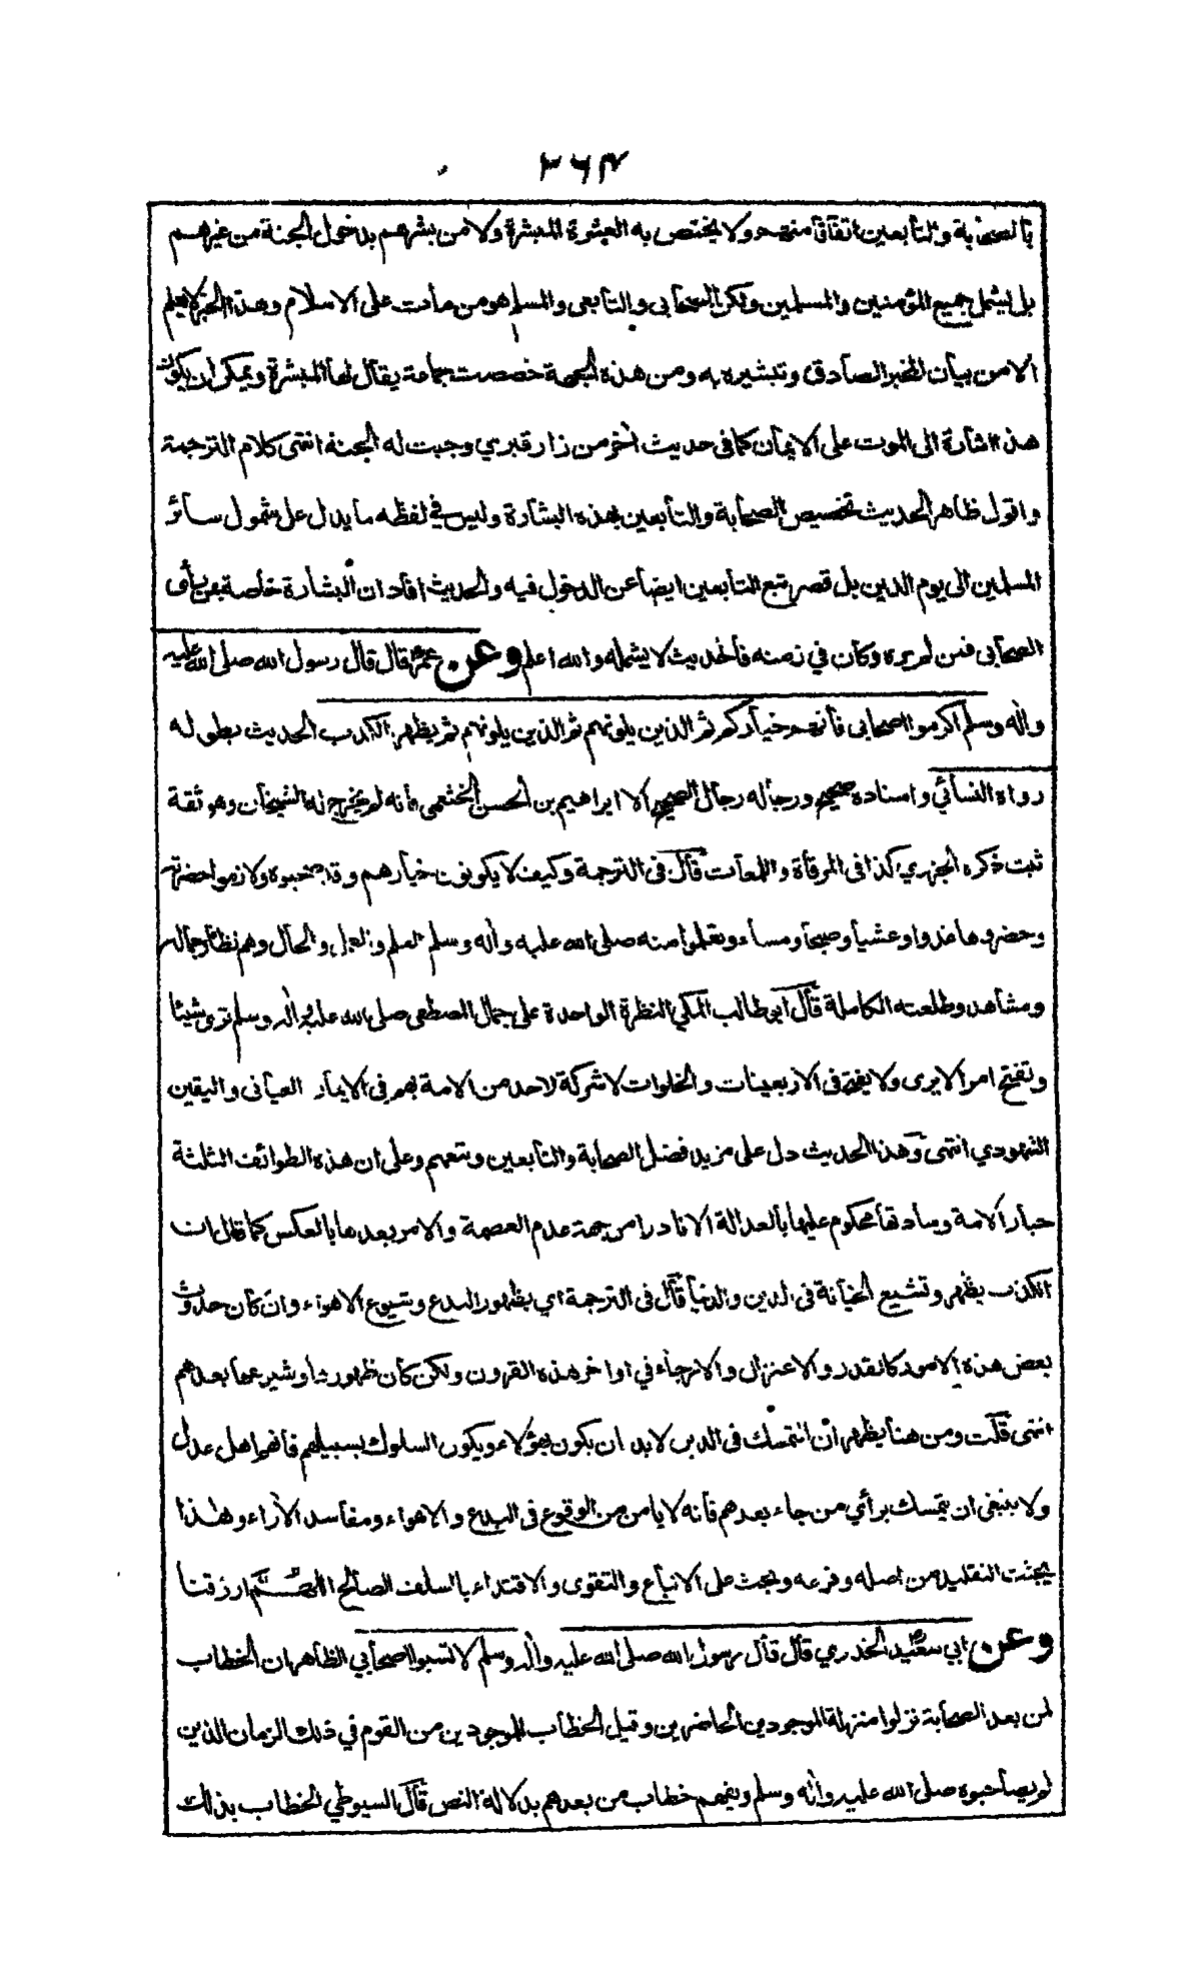 ٣٦٤
بالصحابة والتابعين اتفاقا منهم ولا يختص به العشرة المبشرة ولا من بشرهم بدخول الجنة من غيرهم
بل يشمل جميع المؤمنين والمسلمين ولكن الصحابى والتابعى والمسلم هو من مات على الاسلام وهذا الخبر لا يعلم
الا من بيان المخبر الصادق وتبشيره به ومن هذه الجهة خصصت جماعة يقال لها المبشرة ويمكن ان يكون
هذا اشارة الى الموت على الايمان كما فى حديث اخر من زار قبري وجبت له الجنة انتهى كلام الترجمة
واقول ظاهر الحديث تخصيص الصحابة والتابعين بهذه البشارة وليس في لفظه ما يدل على شمول سائر
المسلمين الى يوم الدين بل قصر تبع التابعين ايضا عن الدخول فيه والحديث افاد ان البشارة خاصة بمن رأى
الصحابى فمن لم يره وكان في زمنه فالحديث لا يشمله والله اعلم وعن عمر قال قال رسول الله صلى الله عليه
واله وسلم اكرموا اصحابى فانهم خياركم ثم الذين يلونهم ثم الذين يلونهم ثم يظهر الكذب الحديث بطوله
رواه النسائي واسناده صحيح ورجاله رجال الصحيح الا ابراهيم بن الحسن الخثعمى فانه لم يخرج له الشيخان وهو ثقة
ثبت ذكره الجزري كذا فى المرقاة واللمعات قال فى الترجمة وكيف لا يكونون خيارهم وقد صحبوه ولازموا حضرته
وحضروها غدوا وعشيا وصبحا ومساء وتعلموا منه صلى الله عليه واله وسلم العلم والعمل والحال وهم نظار جماله
ومشاهدو طلعته الكاملة قال ابو طالب المكي النظرة الواحدة على جمال المصطفى صلى الله عليه واله وسلم ترى شيئا
وتفتح امرا لا يرى ولا يفتح فى الاربعينات والخلوات لا شركة لاحد من الامة بهم فى الايمان العيانى واليقين
الشهودي انتهى وهذا الحديث دل على مزيد فضل الصحابة والتابعين وتبعهم وعلى ان هذه الطوائف الثلثة
خيار الامة وسادتها محكوم عليها بالعدالة الا نادرا من جهة عدم العصمة والامر بعدها بالعكس كما قال ان
الكذب يظهر وتشيع الخيانة فى الدين والدنيا قال فى الترجمة اي بظهور البدع وشيوع الاهواء وان كان حدوث
بعض هذه الامور كالقدر والاعتزال والارجاء في اواخر هذه القرون ولكن كان ظهورها وشيوعها بعدهم
انتهى قلت ومن هنا يظهر ان التمسك فى الدين لابد ان يكون بهؤلاء ويكون السلوك بسبيلهم فانهم اهل عدل
ولا ينبغى ان يتمسك برأي من جاء بعدهم فانه لا يامن من الوقوع فى البدع والاهواء ومفاسد الاراء وهذا
يجتث التقليد من اصله وفرعه ويحث على الاتباع والتقوى والاقتداء بالسلف الصالح اللهم ارزقنا
وعن ابي سعيد الخدري قال قال رسول الله صلى الله عليه واله وسلم لا تسبوا اصحابي الظاهر ان الخطاب
لمن بعد الصحابة نزلوا منزلة الموجودين الحاضرين وقيل الخطاب للموجودين من القوم في ذلك الزمان الذين
لم يصاحبوه صلى الله عليه واله وسلم ويفهم خطاب من بعدهم بدلالة النص قال السيوطي الخطاب بذلك